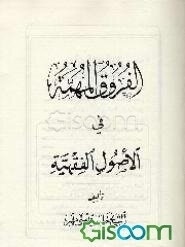 الفروق المهمة
في
الأصول الفقهية
تأليف
Gisoom
.com